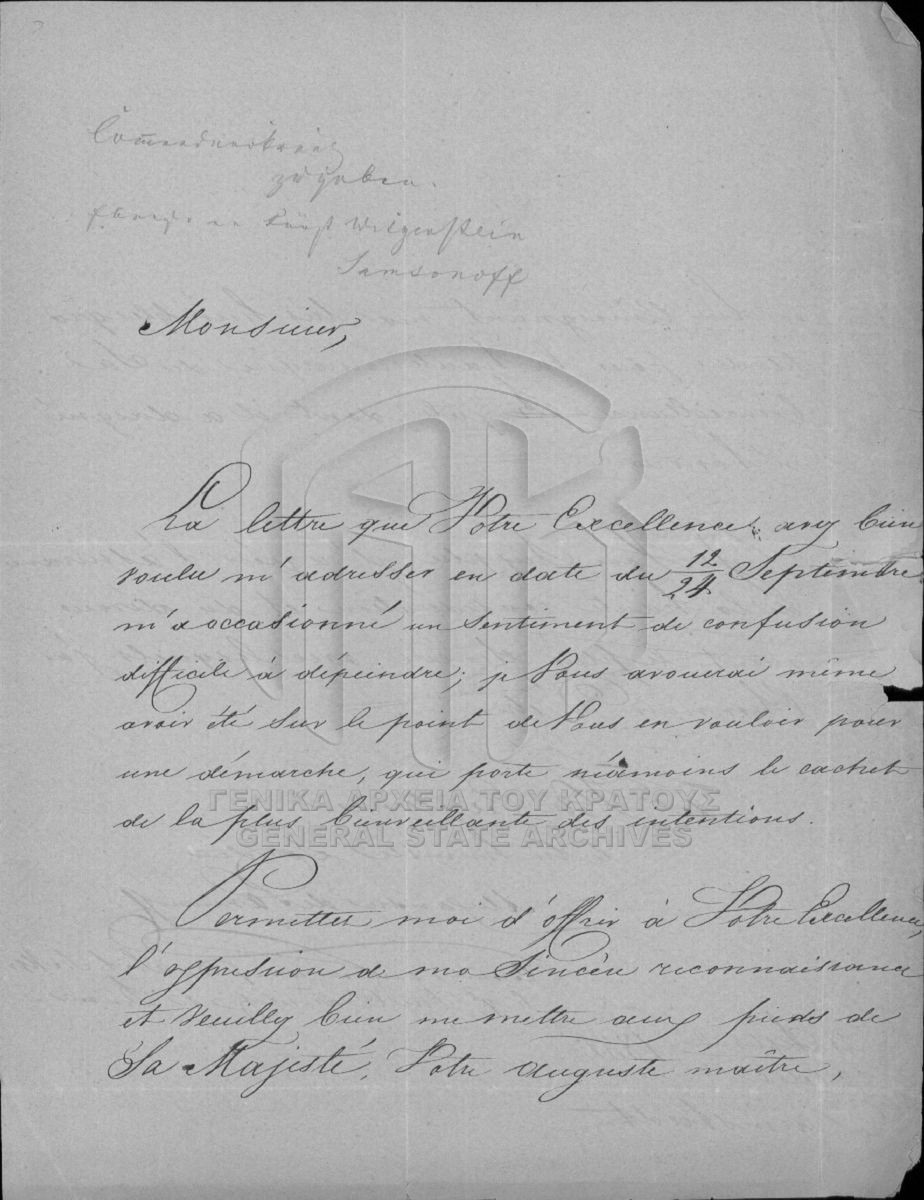 zu geben.
Fürst Witgenstein
Samsonoff
Monsieur,
La lettre que Votre Excellence, avez bien
voulu m'adresser en date du 12/24 Septembre
m'a occasionné un sentiment de confusion
difficile à dépeindre; je Vous avouerai même
avoir été sur le point de Vous en vouloir pour
une démarche, qui porte néamoins le cachet
de la plus bienveillante des intentions.
ΓΕΝΙΚΑ ΑΡΧΕΙΑ ΤΟΥ ΚΡΑΤΟΥΣ
GENERAL STATE ARCHIVES
Permettez moi d'offrir à Votre Excellence,
l'expression de ma sincère reconnaissance
et veuillez bien me mettre aux pieds de
Sa Majesté, Votre auguste maître,